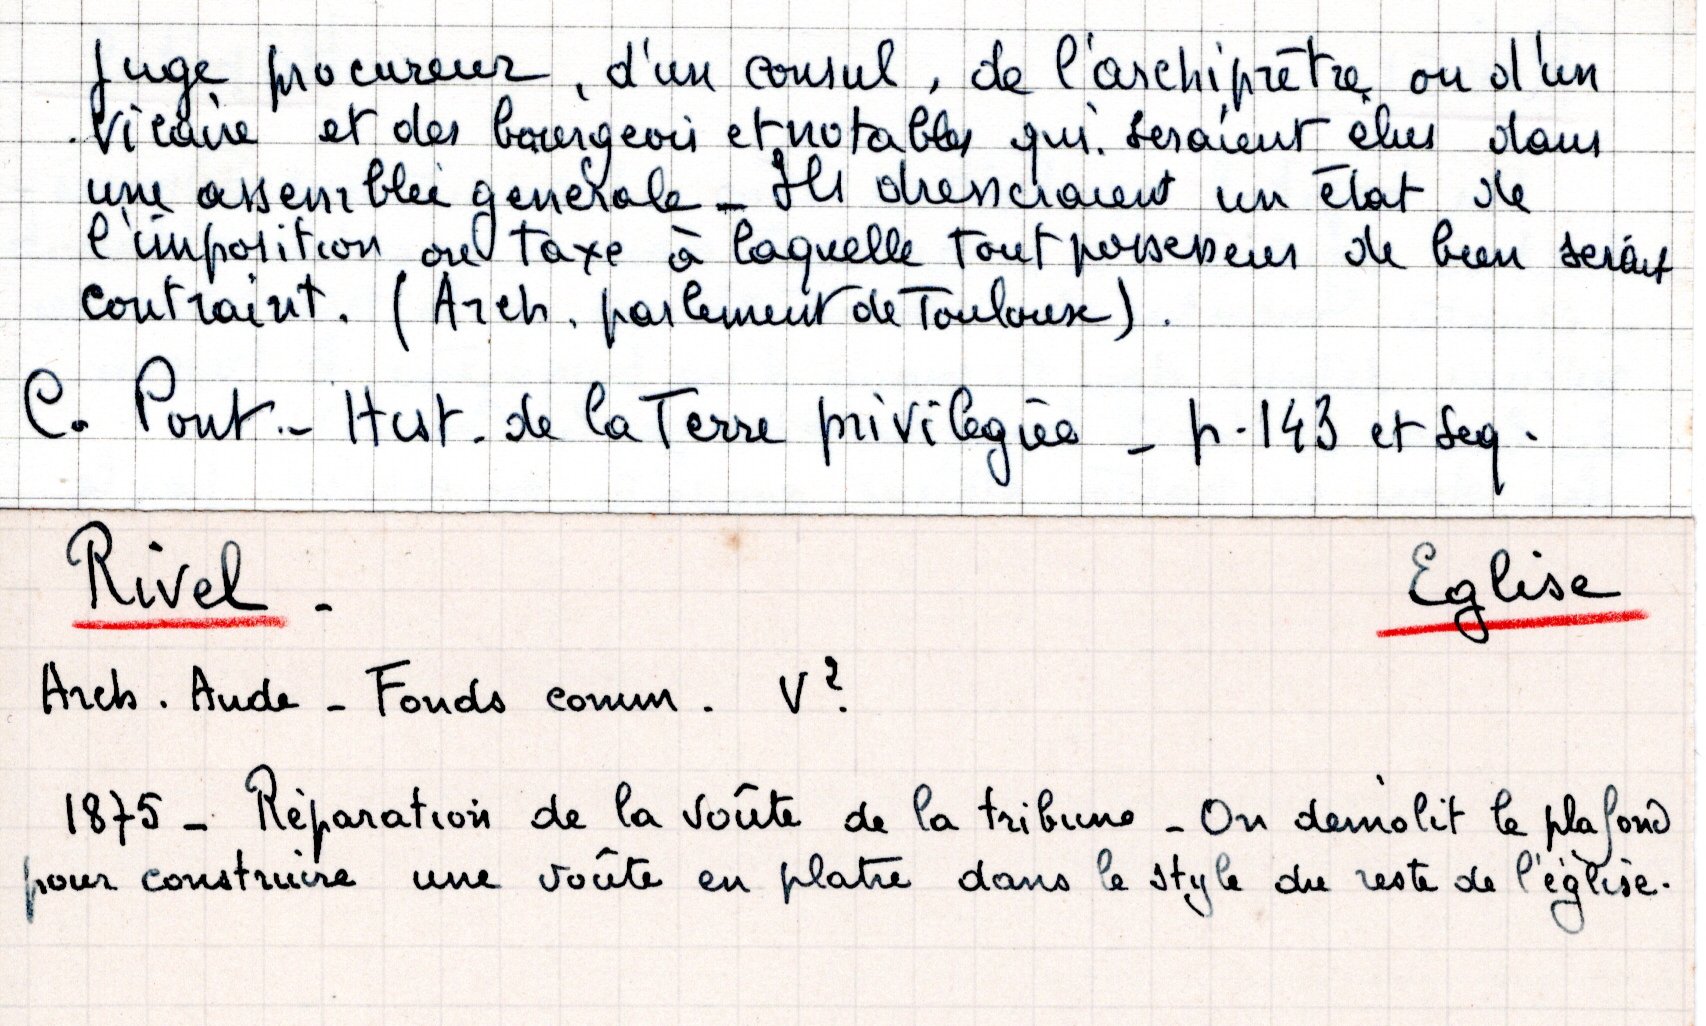 juge procureur, d'un consul, de l'archiprêtre ou d'un
vicaire et des bourgeois et notables qui seraient élus dans
une assemblée generale - Ils dresseraient un état de
l'imposition ou taxe à laquelle tout possesseur de bien serait
contraint. (Arch. parlement de Toulouse).
C. Pont.- Hist. de la Terre privilégiée - p.143 et seq.
Rivel - Eglise
Arch. Aude - Fonds comm. V².
1875 - Réparation de la voûte de la tribune - On démolit le plafond
pour construire une voûte en platre dans le style du reste de l'église.